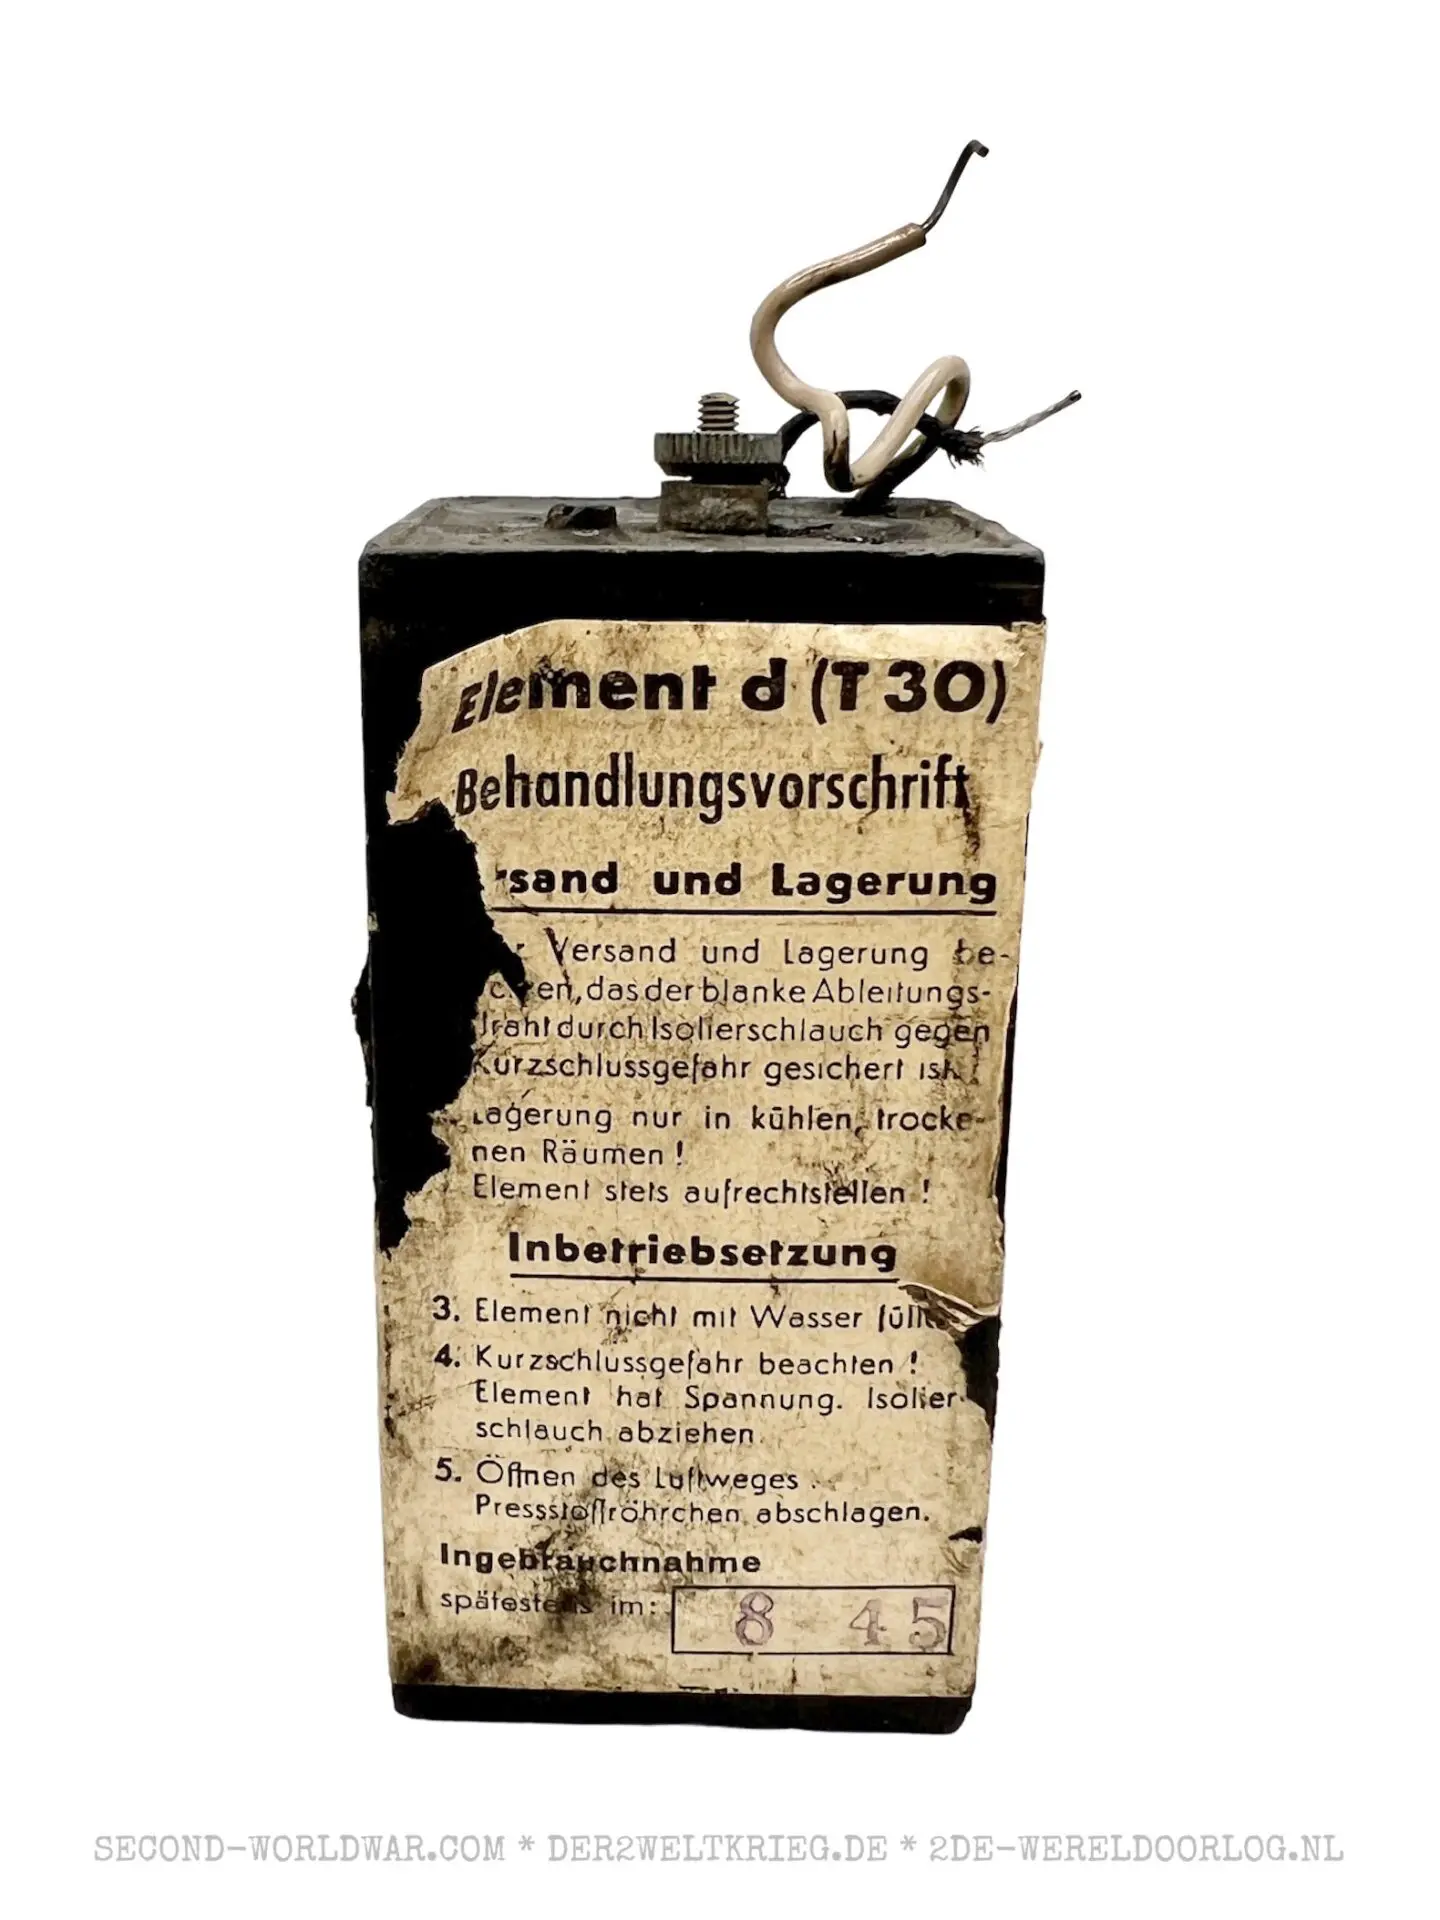 Element d (T 30)
Behandlungsvorschrift
rsand und Lagerung
Versand und Lagerung be-
en, das der blanke Ableitungs-
draht durch Isolierschlauch gegen
Kurzschlussgefahr gesichert ist.
Lagerung nur in kühlen, trocke-
nen Räumen !
Element stets aufrechtstellen !
Inbetriebsetzung
3. Element nicht mit Wasser
4. Kurzschlussgefahr beachten !
Element hat Spannung. Isolier-
schlauch abziehen.
5. Öffnen des Luftweges .
Pressstoffröhrchen abschlagen.
Ingebrauchnahme
spätestens im: 8 45
SECOND-WORLDWAR.COM * DER2WELTKRIEG.DE * 2DE-WERELDOORLOG.NL